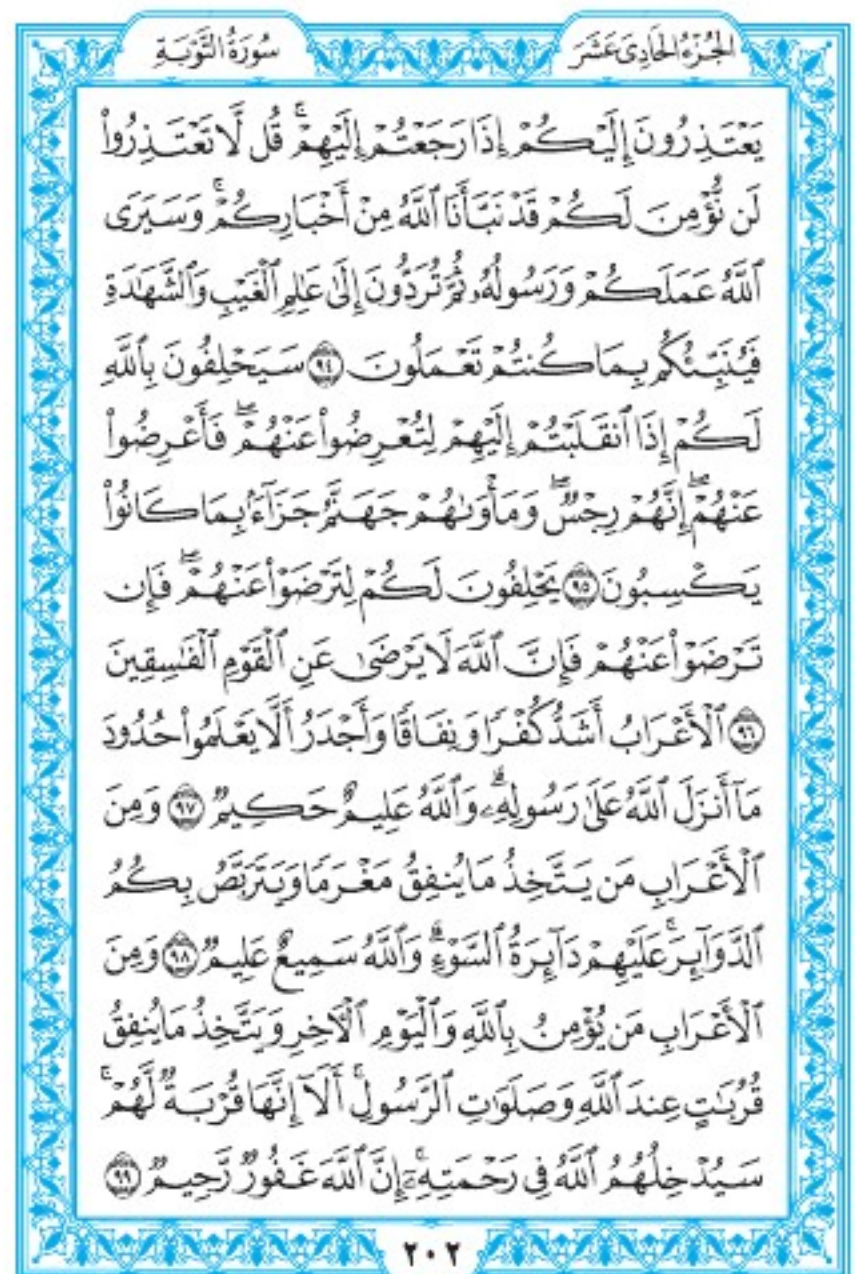 الجُزْءُ الحَادِى عَشَرَ
سُورَةُ التَّوْبَةِ
يَعْتَذِرُونَ إِلَيْكُمْ إِذَا رَجَعْتُمْ إِلَيْهِمْۚ قُل لَّا تَعْتَذِرُوا۟
لَن نُّؤْمِنَ لَكُمْ قَدْ نَبَّأَنَا ٱللَّهُ مِنْ أَخْبَارِكُمْۚ وَسَيَرَى
ٱللَّهُ عَمَلَكُمْ وَرَسُولُهُۥ ثُمَّ تُرَدُّونَ إِلَىٰ عَٰلِمِ ٱلْغَيْبِ وَٱلشَّهَٰدَةِ
فَيُنَبِّئُكُم بِمَا كُنتُمْ تَعْمَلُونَ ٩٤ سَيَحْلِفُونَ بِٱللَّهِ
لَكُمْ إِذَا ٱنقَلَبْتُمْ إِلَيْهِمْ لِتُعْرِضُوا۟ عَنْهُمْۖ فَأَعْرِضُوا۟
عَنْهُمْۖ إِنَّهُمْ رِجْسٌۖ وَمَأْوَىٰهُمْ جَهَنَّمُ جَزَآءًۢ بِمَا كَانُوا۟
يَكْسِبُونَ ٩٥ يَحْلِفُونَ لَكُمْ لِتَرْضَوْا۟ عَنْهُمْۖ فَإِن
تَرْضَوْا۟ عَنْهُمْ فَإِنَّ ٱللَّهَ لَا يَرْضَىٰ عَنِ ٱلْقَوْمِ ٱلْفَٰسِقِينَ
٩٦ ٱلْأَعْرَابُ أَشَدُّ كُفْرًا وَنِفَاقًا وَأَجْدَرُ أَلَّا يَعْلَمُوا۟ حُدُودَ
مَآ أَنزَلَ ٱللَّهُ عَلَىٰ رَسُولِهِۦۗ وَٱللَّهُ عَلِيمٌ حَكِيمٌ ٩٧ وَمِنَ
ٱلْأَعْرَابِ مَن يَتَّخِذُ مَا يُنفِقُ مَغْرَمًا وَيَتَرَبَّصُ بِكُمُ
ٱلدَّوَآئِرَۚ عَلَيْهِمْ دَآئِرَةُ ٱلسَّوْءِۗ وَٱللَّهُ سَمِيعٌ عَلِيمٌ ٩٨ وَمِنَ
ٱلْأَعْرَابِ مَن يُؤْمِنُ بِٱللَّهِ وَٱلْيَوْمِ ٱلْءَاخِرِ وَيَتَّخِذُ مَا يُنفِقُ
قُرُبَٰتٍ عِندَ ٱللَّهِ وَصَلَوَٰتِ ٱلرَّسُولِۚ أَلَآ إِنَّهَا قُرْبَةٌ لَّهُمْۚ
سَيُدْخِلُهُمُ ٱللَّهُ فِى رَحْمَتِهِۦٓۚ إِنَّ ٱللَّهَ غَفُورٌ رَّحِيمٌ ٩٩
٢٠٢